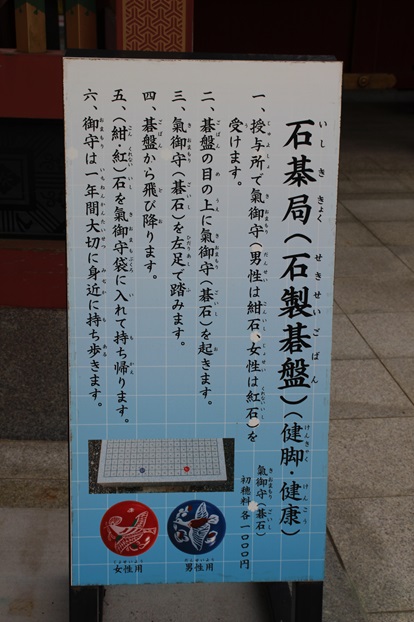 石棊局(石製碁盤)(健脚・健康)
一、授与所で氣御守(男性は紺石、女性は紅石)を
受けます。
二、碁盤の目の上に氣御守(碁石)を起きます。
三、氣御守(碁石)を左足で踏みます。
四、碁盤から飛び降ります。
五、(紺・紅)石を氣御守袋に入れて持ち帰ります。
六、御守は一年間大切に身近に持ち歩きます。
氣御守(碁石)
初穂料 各一〇〇〇円
女性用
男性用